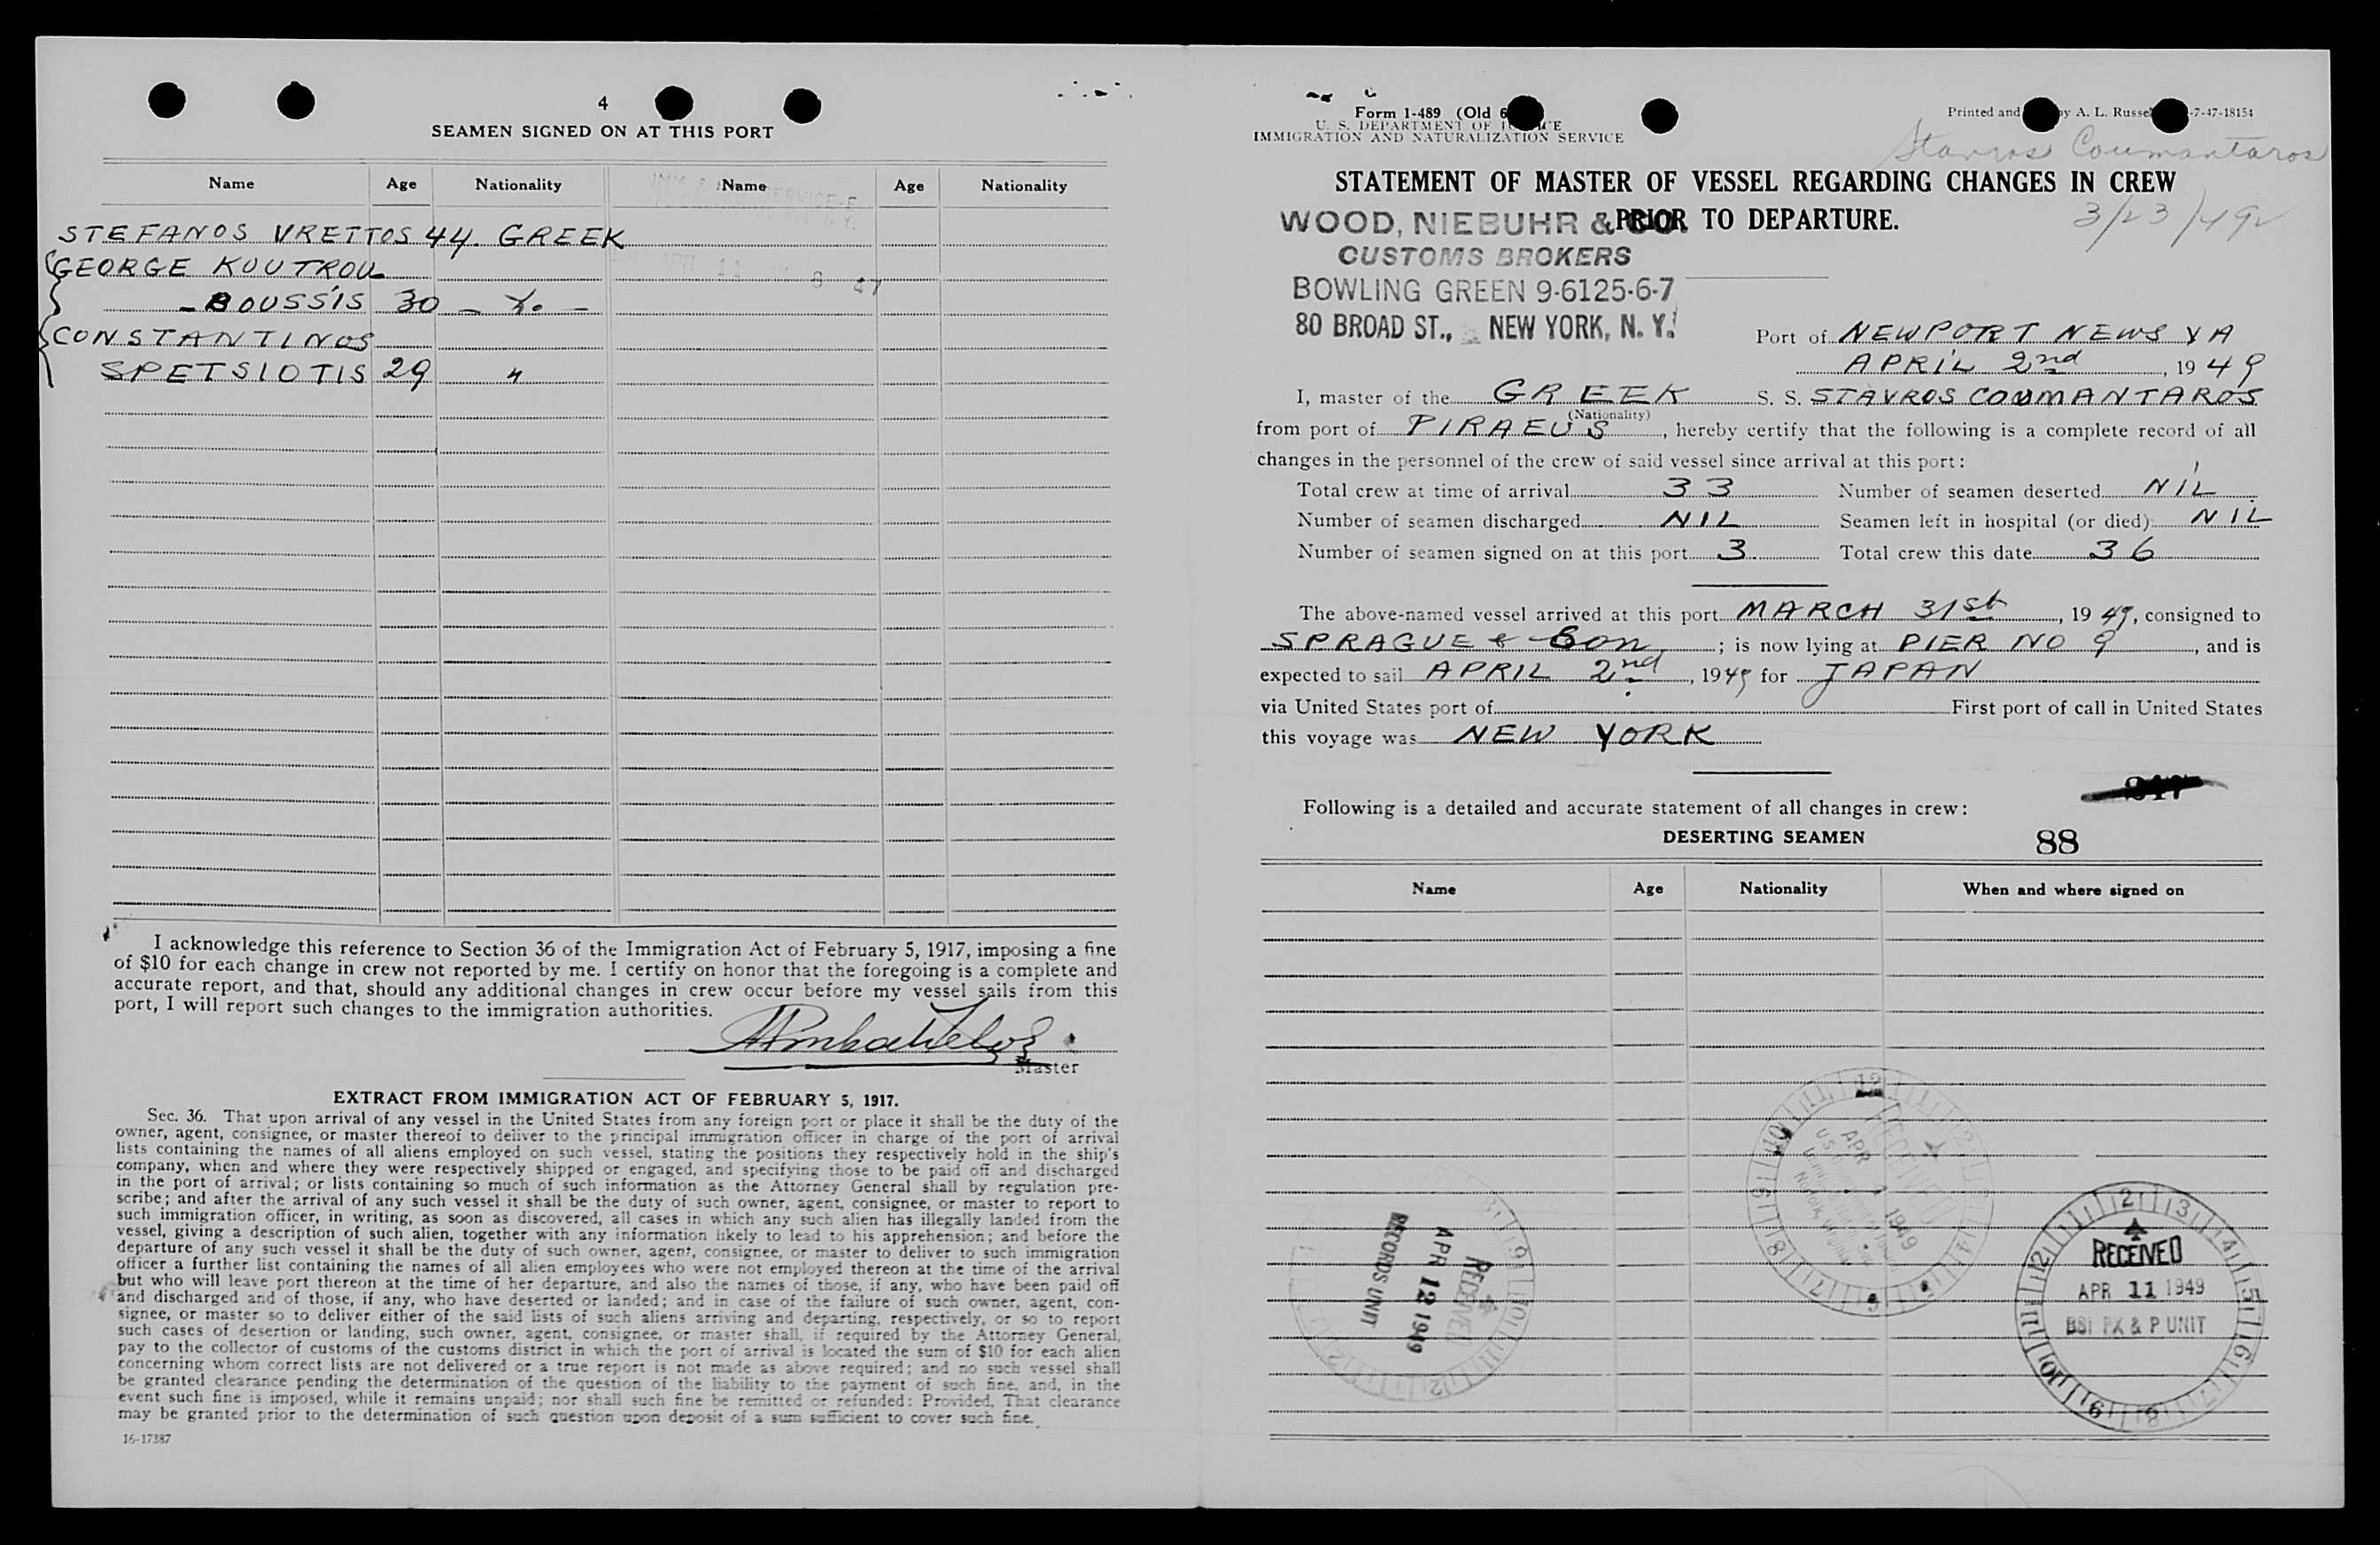 4
SEAMEN SIGNED ON AT THIS PORT
Name Age Nationality Name Age Nationality
STEFANOS VRETTOS 44. GREEK
GEORGE KOUTROU
- BOUSSIS 30 - Do. -
CONSTANTINOS
SPETSIOTIS 29 "
I acknowledge this reference to Section 36 of the Immigration Act of February 5, 1917, imposing a fine
of $10 for each change in crew not reported by me. I certify on honor that the foregoing is a complete and
accurate report, and that, should any additional changes in crew occur before my vessel sails from this
port, I will report such changes to the immigration authorities.
Master
EXTRACT FROM IMMIGRATION ACT OF FEBRUARY 5, 1917.
Sec. 36. That upon arrival of any vessel in the United States from any foreign port or place it shall be the duty of the
owner, agent, consignee, or master thereof to deliver to the principal immigration officer in charge of the port of arrival
lists containing the names of all aliens employed on such vessel, stating the positions they respectively hold in the ship's
company, when and where they were respectively shipped or engaged, and specifying those to be paid off and discharged
in the port of arrival; or lists containing so much of such information as the Attorney General shall by regulation pre-
scribe; and after the arrival of any such vessel it shall be the duty of such owner, agent, consignee, or master to report to
such immigration officer, in writing, as soon as discovered, all cases in which any such alien has illegally landed from the
vessel, giving a description of such alien, together with any information likely to lead to his apprehension; and before the
departure of any such vessel it shall be the duty of such owner, agent, consignee, or master to deliver to such immigration
officer a further list containing the names of all alien employees who were not employed thereon at the time of the arrival
but who will leave port thereon at the time of her departure, and also the names of those, if any, who have been paid off
and discharged and of those, if any, who have deserted or landed; and in case of the failure of such owner, agent, con-
signee, or master so to deliver either of the said lists of such aliens arriving and departing, respectively, or so to report
such cases of desertion or landing, such owner, agent, consignee, or master shall, if required by the Attorney General,
pay to the collector of customs of the customs district in which the port of arrival is located the sum of $10 for each alien
concerning whom correct lists are not delivered or a true report is not made as above required; and no such vessel shall
be granted clearance pending the determination of the question of the liability to the payment of such fine, and, in the
event such fine is imposed, while it remains unpaid; nor shall such fine be remitted or refunded: Provided, That clearance
may be granted prior to the determination of such question upon deposit of a sum sufficient to cover such fine.
16-17387
Form I-489 (Old 6
U. S. DEPARTMENT OF JUSTICE
IMMIGRATION AND NATURALIZATION SERVICE
Printed and by A. L. Russel -7-47-18154
Stavros Coumantaros
STATEMENT OF MASTER OF VESSEL REGARDING CHANGES IN CREW
PRIOR TO DEPARTURE.
3/23/49
WOOD, NIEBUHR & CO.
CUSTOMS BROKERS
BOWLING GREEN 9-6125-6-7
80 BROAD ST., NEW YORK, N. Y.
Port of NEWPORT NEWS VA
APRIL 2nd, 1949
I, master of the GREEK S. S. STAVROS COUMANTAROS
(Nationality)
from port of PIRAEUS, hereby certify that the following is a complete record of all
changes in the personnel of the crew of said vessel since arrival at this port:
Total crew at time of arrival 33 Number of seamen deserted NIL
Number of seamen discharged NIL Seamen left in hospital (or died) NIL
Number of seamen signed on at this port 3 Total crew this date 36
The above-named vessel arrived at this port MARCH 31st, 1949, consigned to
SPRAGUE & Son; is now lying at PIER NO 9, and is
expected to sail APRIL 2nd, 1949 for JAPAN
via United States port of First port of call in United States
this voyage was NEW YORK
Following is a detailed and accurate statement of all changes in crew:
DESERTING SEAMEN
88
Name Age Nationality When and where signed on
RECEIVED
APR 1 1949
Norfolk, Virginia
RECEIVED
APR 12 1949
RECORDS UNIT
RECEIVED
APR 11 1949
BSI PX & P UNIT